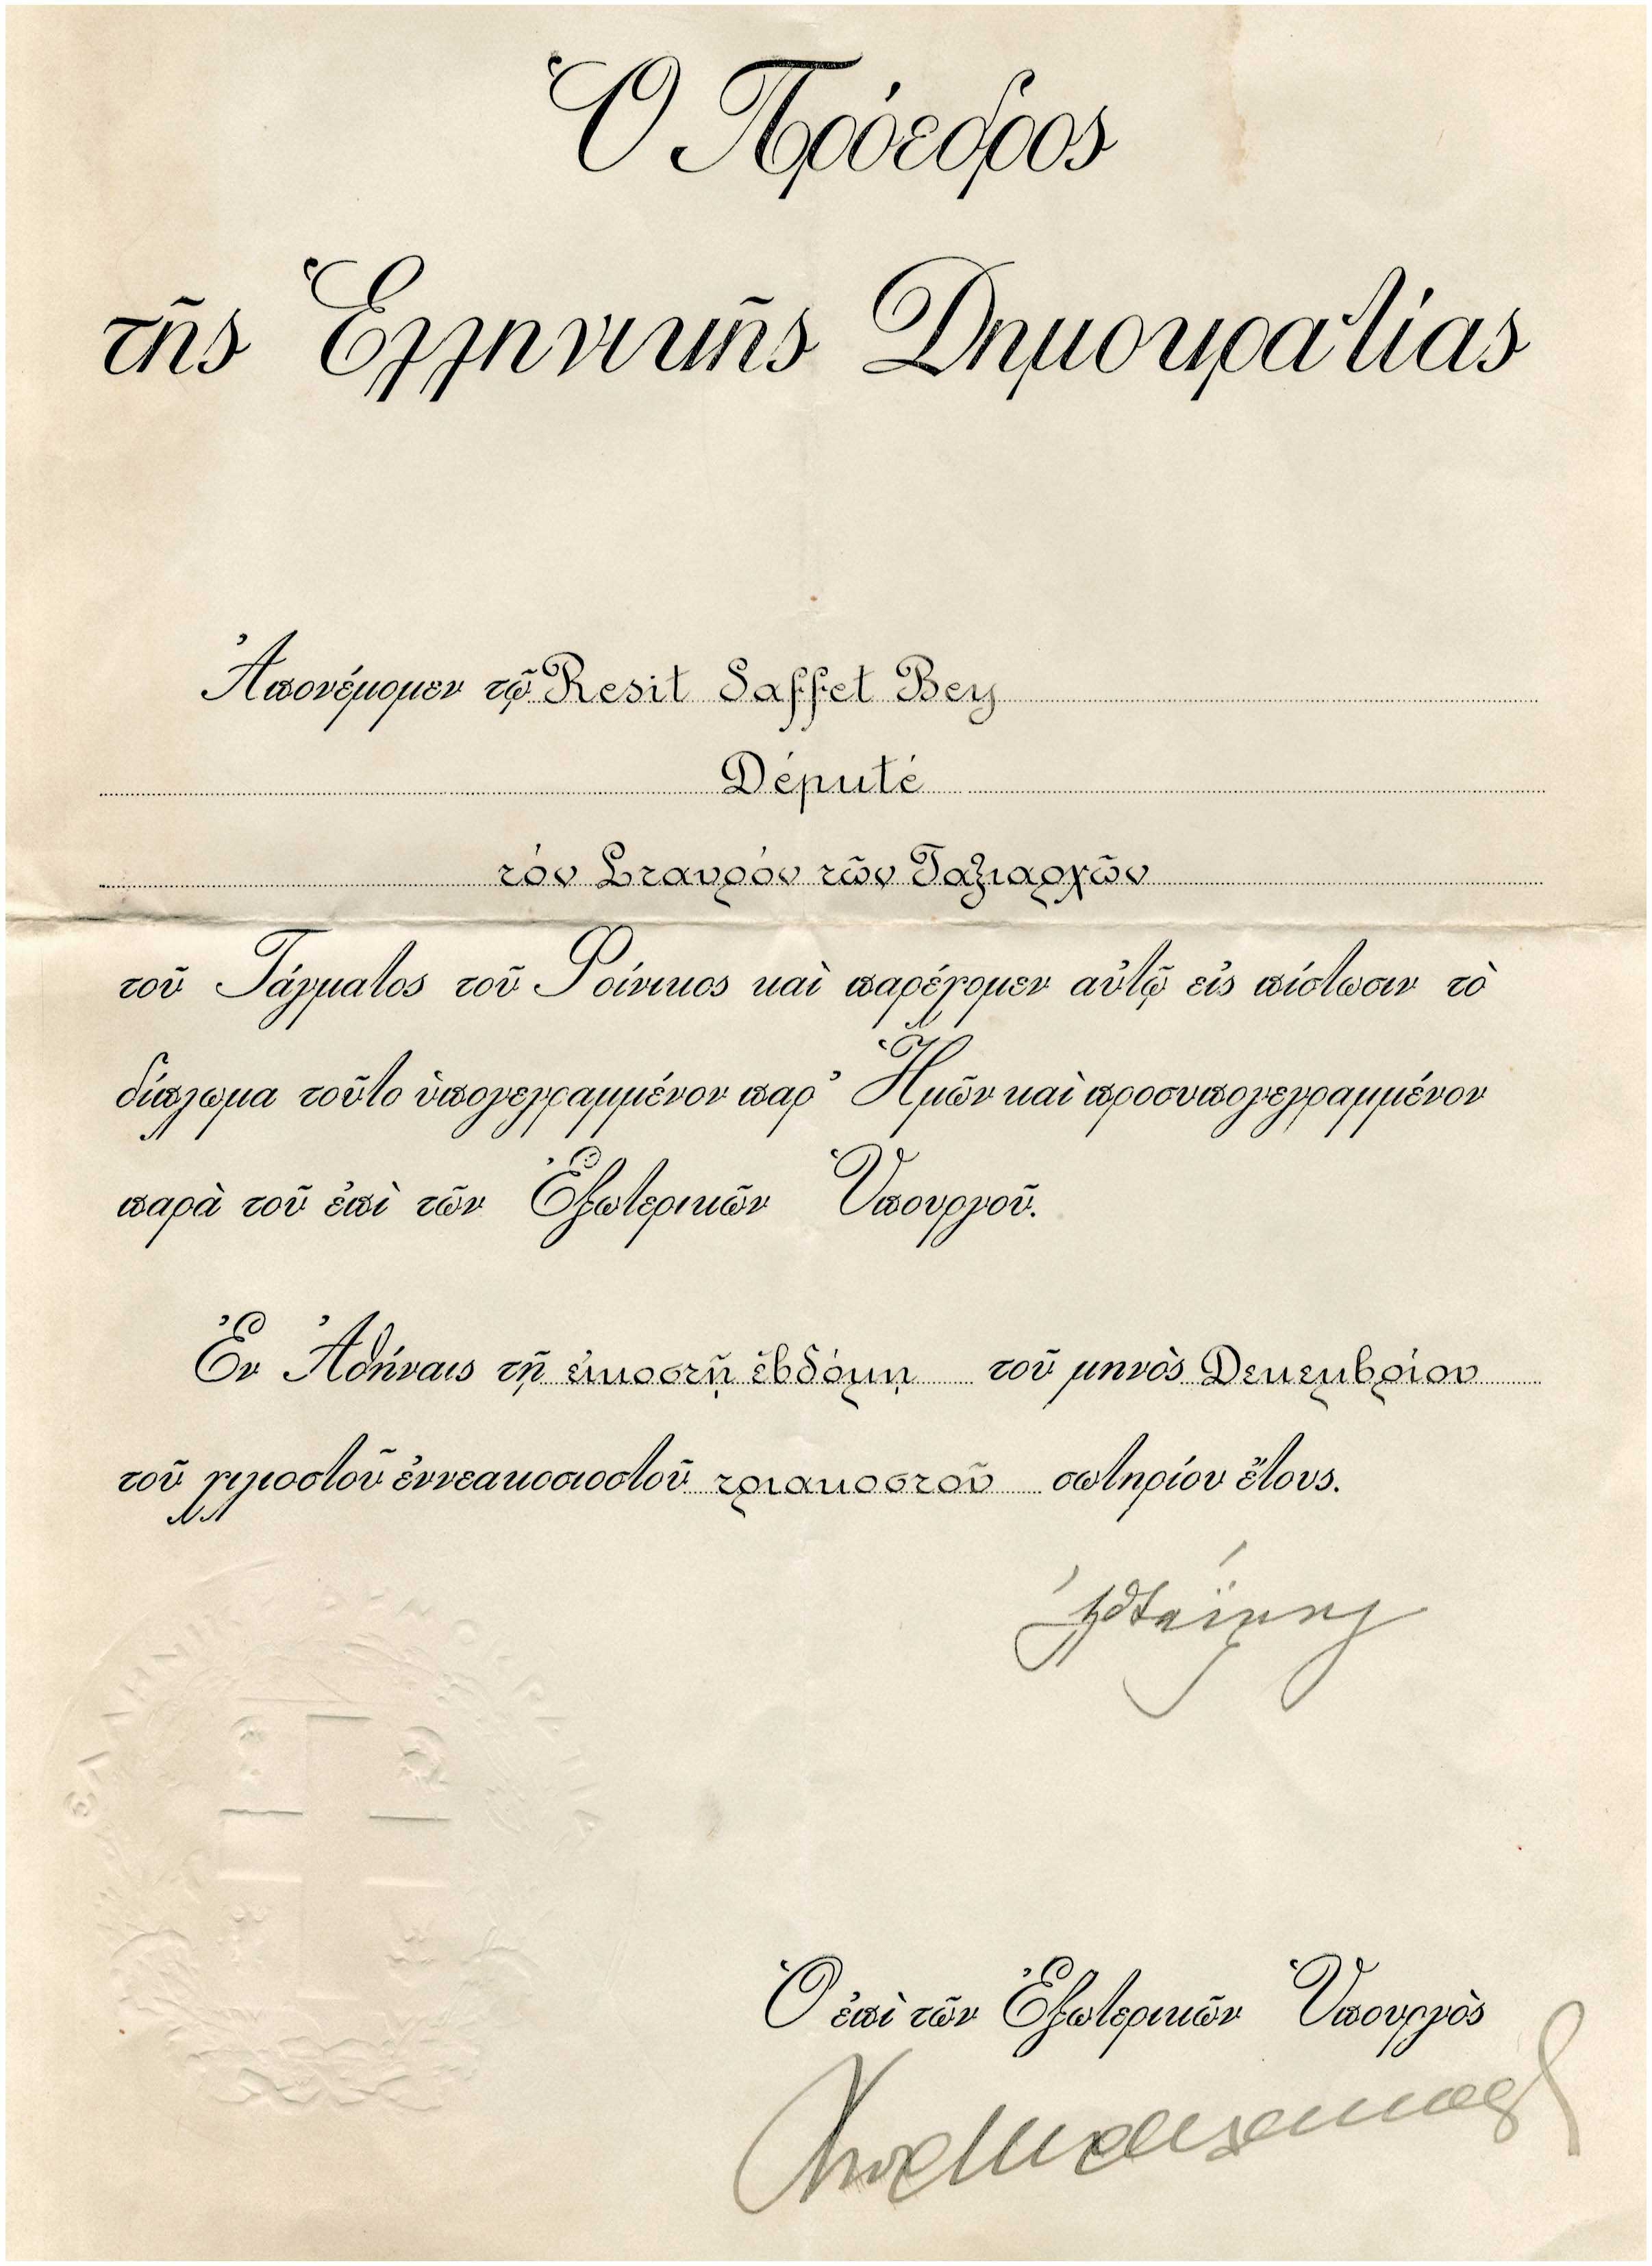 Ὁ Πρόεδρος
τῆς Ἑλληνικῆς Δημοκρατίας
Ἀπονέμομεν τῷ Resit Saffet Bey
Député
τόν Σταυρόν τῶν Ταξιαρχῶν
τοῦ Τάγματος τοῦ Φοίνικος καὶ παρέχομεν αὐτῷ εἰς πίστωσιν τὸ
δίπλωμα τοῦτο ὑπογεγραμμένον παρ’ Ἡμῶν καὶ προσυπογεγραμμένον
παρὰ τοῦ ἐπὶ τῶν Ἐξωτερικῶν Ὑπουργοῦ.
Ἐν Ἀθήναις τῇ εἰκοστῇ ἑβδόμῃ τοῦ μηνὸς Δεκεμβρίου
τοῦ χιλιοστοῦ ἐννεακοσιοστοῦ τριακοστοῦ σωτηρίου ἔτους.
ΕΛΛΗΝΙΚΗ ΔΗΜΟΚΡΑΤΙΑ
Ὁ ἐπὶ τῶν Ἐξωτερικῶν Ὑπουργὸς